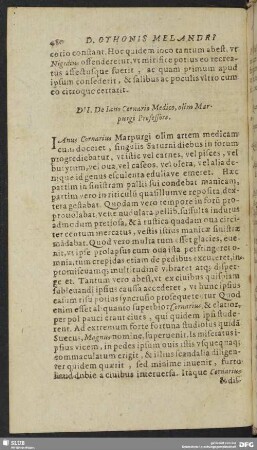 480 D. OTHONIS MELANDRI
certo constant. Hoc quidem ioco tantum abest, vt
Nigidius offenderetur, vt mirifice potius eo recrea-
tus affectusque fuerit, ac quam primum apud
ipsum consederit, & salibus ac poculis vltro cum
eo citroque certarit.
D'I. De Iano Cornario Medico, olim Mar-
purgi Professore.
IAnus Cornarius Marpurgi olim artem medicam
cum doceret, singulis Saturni diebus in forum
progrediebatur, vt istic vel carnes, vel pisces, vel
butyrum, vel oua, vel caseos, vel olera, vel alia de-
inque id genus esculenta edulia ve emeret. Hæc
partim in sinistram pallii sui condebat manicam,
partim vero in ridiculo reposita dex-
tera gestabat. Quodam vero tempore in forum
prouolabat,
admodum pretiosa, & a rustica quadam oui circi-
ter centum mercatus, vestis istius manicæ sinistræ
mādabat. Quod vero multa tum esset glacies, eue-
nit, vt ipse prolapsus eum oua ista perfringeret o-
mnia, tum crepidas etiam de pedibus excuteret, in-
promiscuamque multitudinē vibraret atque disper-
ge et. Tantum vero abest, vt ex ciuibus quispiam
subleuandi ipsum causa accederet, vt hunc ipsius
casum risu potius syncrusio prosequerentur. Quod
enim esset aliquanto superbior Cornarius, & elatior,
per pol pauci erant ciues, qui quidem ipsi stude-
rent. Ad extremum forte fortuna studiosus quidā
Suecus, Magnus nomine, superuenit. Is misertus i-
psius vicem, in pedes ipsum ouis istis vsquequaque
commaculatum erigit, & illius scandalia diligen-
ter quidem quærit, sed minime inuenit, furto
haud dubie a ciuibus interuersa. Itaque Cornarius
SLUB